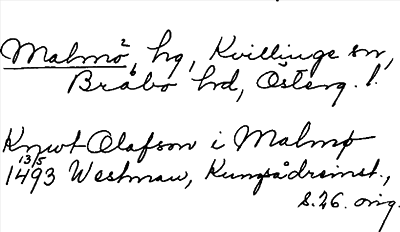 Malmö², hg, Kvillinge sn,
Bråbo hrd, Österg. l.
Knwt Olafson i Malmø
13/5
1493 Westman, Kungsådreinst.,
s. 26. orig.